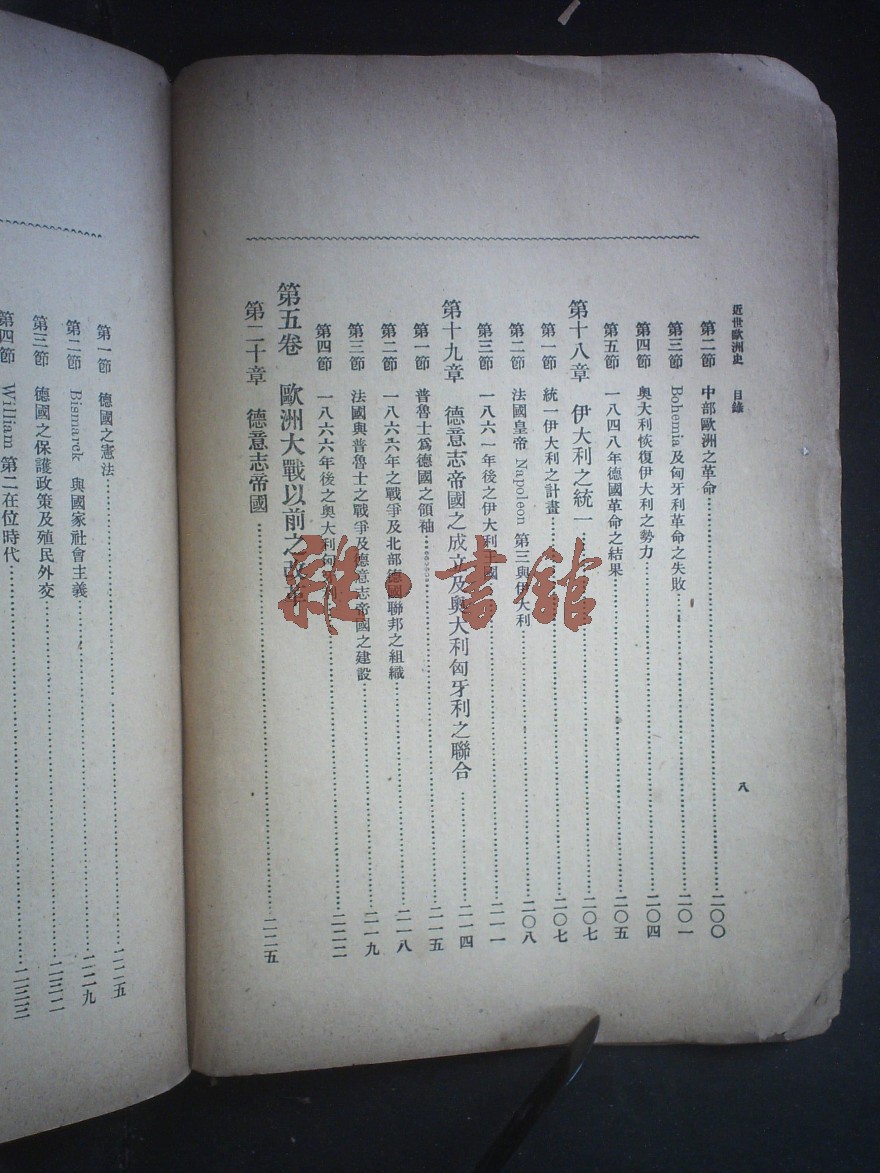 近世歐洲史 目錄 八
第二節 中部歐洲之革命 二〇〇
第三節 Bohemia及匈牙利革命之失敗 二〇一
第四節 奧大利恢復伊大利之勢力 二〇四
第五節 一八四八年德國革命之結果 二〇五
第十八章 伊大利之統一 二〇七
第一節 統一伊大利之計畫 二〇七
第二節 法國皇帝 Napoleon 第三與伊大利 二〇八
第三節 一八六一年後之伊大利王國 二一一
第十九章 德意志帝國之成立及奧大利匈牙利之聯合 二一四
第一節 普魯士爲德國之領袖 二一五
第二節 一八六六年之戰爭及北部德國聯邦之組織 二一八
第三節 法國與普魯士之戰爭及德意志帝國之建設 二一九
第四節 一八六六年後之奧大利匈 二二二
第五卷 歐洲大戰以前之改革
第二十章 德意志帝國 二二五
第一節 德國之憲法 二二五
第二節 Bismarck 與國家社會主義 二二九
第三節 德國之保護政策及殖民外交 二三二
第四節 William 第二在位時代 二三三
雜·書館